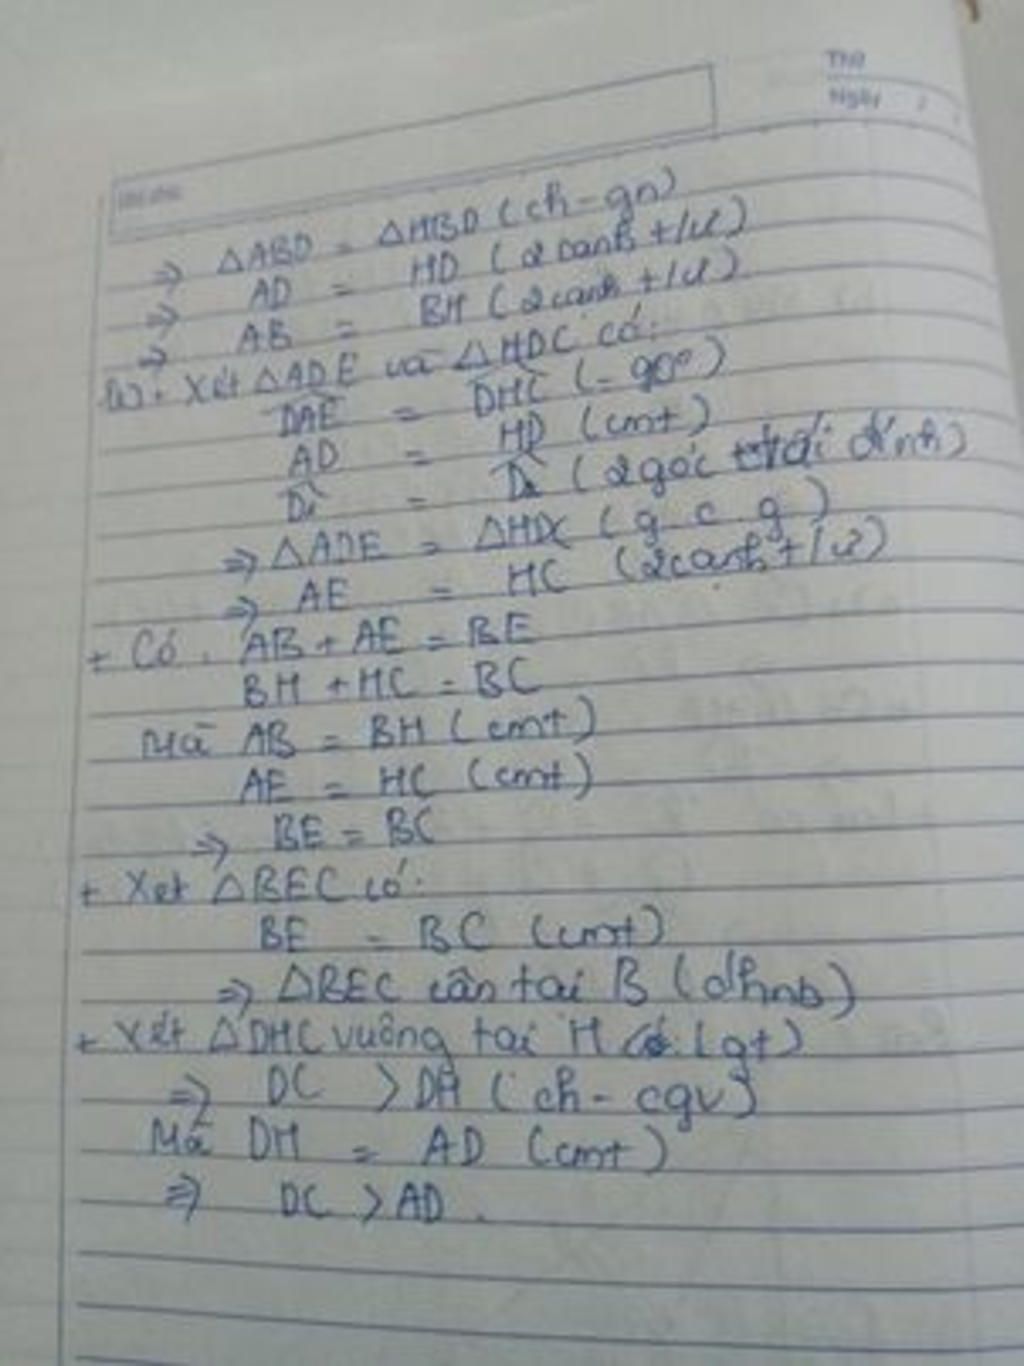 Thứ
Ngày / /
⇒ △ABD = △HBD (ch - gn)
⇒ AD = HD (2 cạnh t/ứ)
⇒ AB = BH (2 cạnh t/ứ)
b) + Xét △ADE và △HDC có:
DAE = DHC (= 90°)
AD = HD (cmt)
D₁ = D₂ (2 góc đối đỉnh)
⇒ △ADE = △HDC (g c g)
⇒ AE = HC (2 cạnh t/ứ)
+ Có. AB + AE = BE
BH + HC = BC
Mà AB = BH (cmt)
AE = HC (cmt)
⇒ BE = BC
+ Xét △BEC có:
BE = BC (cmt)
⇒ △BEC cân tại B (dhnb)
+ Xét △DHC vuông tại H có (gt)
⇒ DC > DH (ch - cgv)
Mà DH = AD (cmt)
⇒ DC > AD.